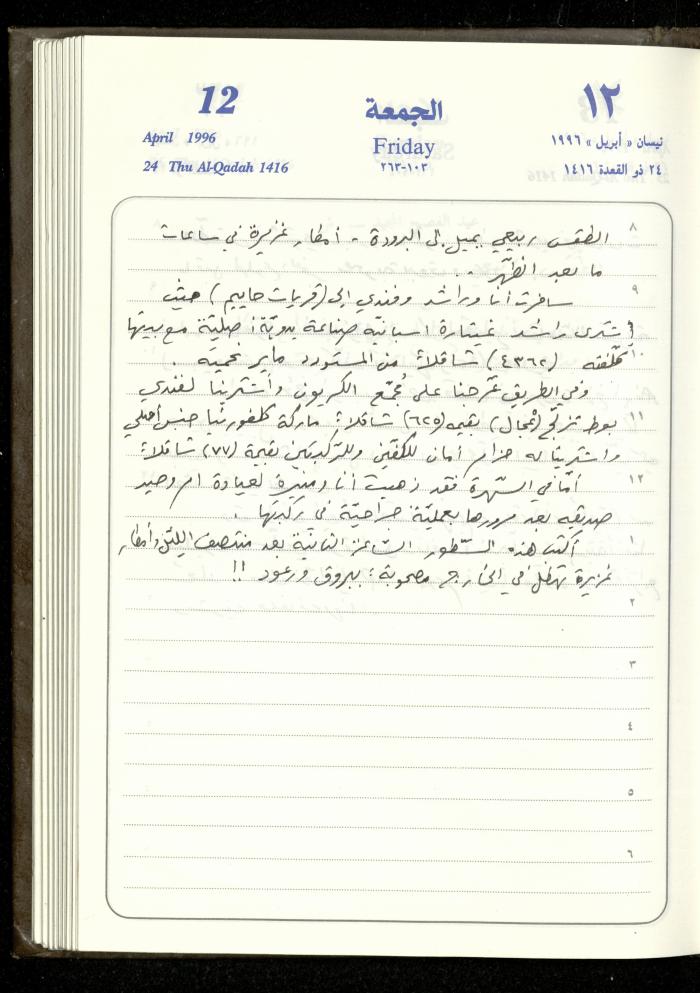 12
April 1996
24 Thu Al-Qadah 1416
الجمعة
Friday
٢٦٣-١٠٣
١٢
نيسان « أبريل » ١٩٩٦
٢٤ ذو القعدة ١٤١٦
٨
الطقس ربيعي يميل إلى البرودة - أمطار غزيرة في ساعات
ما بعد الظهر -
٩
سافرت أنا وراشد وفندي إلى (قريات حاييم) حيث
اشترى راشد غيتارة اسبانية صناعة يدوية أصلية مع بيتها
١٠
كلّفته (٤٣٦٢) شاقلاً من المستورد ماير نحمية .
وفي الطريق عرّجنا على مُجمّع الكريون واشترينا لفندي
١١
بوط تزلج (عجال) بقيمة (٦٢٥) شاقلاً ماركة كلفورنيا جنس أصلي
واشترينا له حزام أمان للكفّين وللركبتين بقيمة (٧٧) شاقلاً
١٢
أمّا في السّهرة فقد ذهبت أنا ومنيرة لعيادة ام وحيد
صديقه بعد مرورها بعمليّة جراحيّة في ركبتها .
١
أكتب هذه السّطور السّاعة الثانيّة بعد منتصف الليل وأمطار
غزيرة تهطل في الخارج مصحوبة ببروق ورعود !!
٢
٣
٤
٥
٦